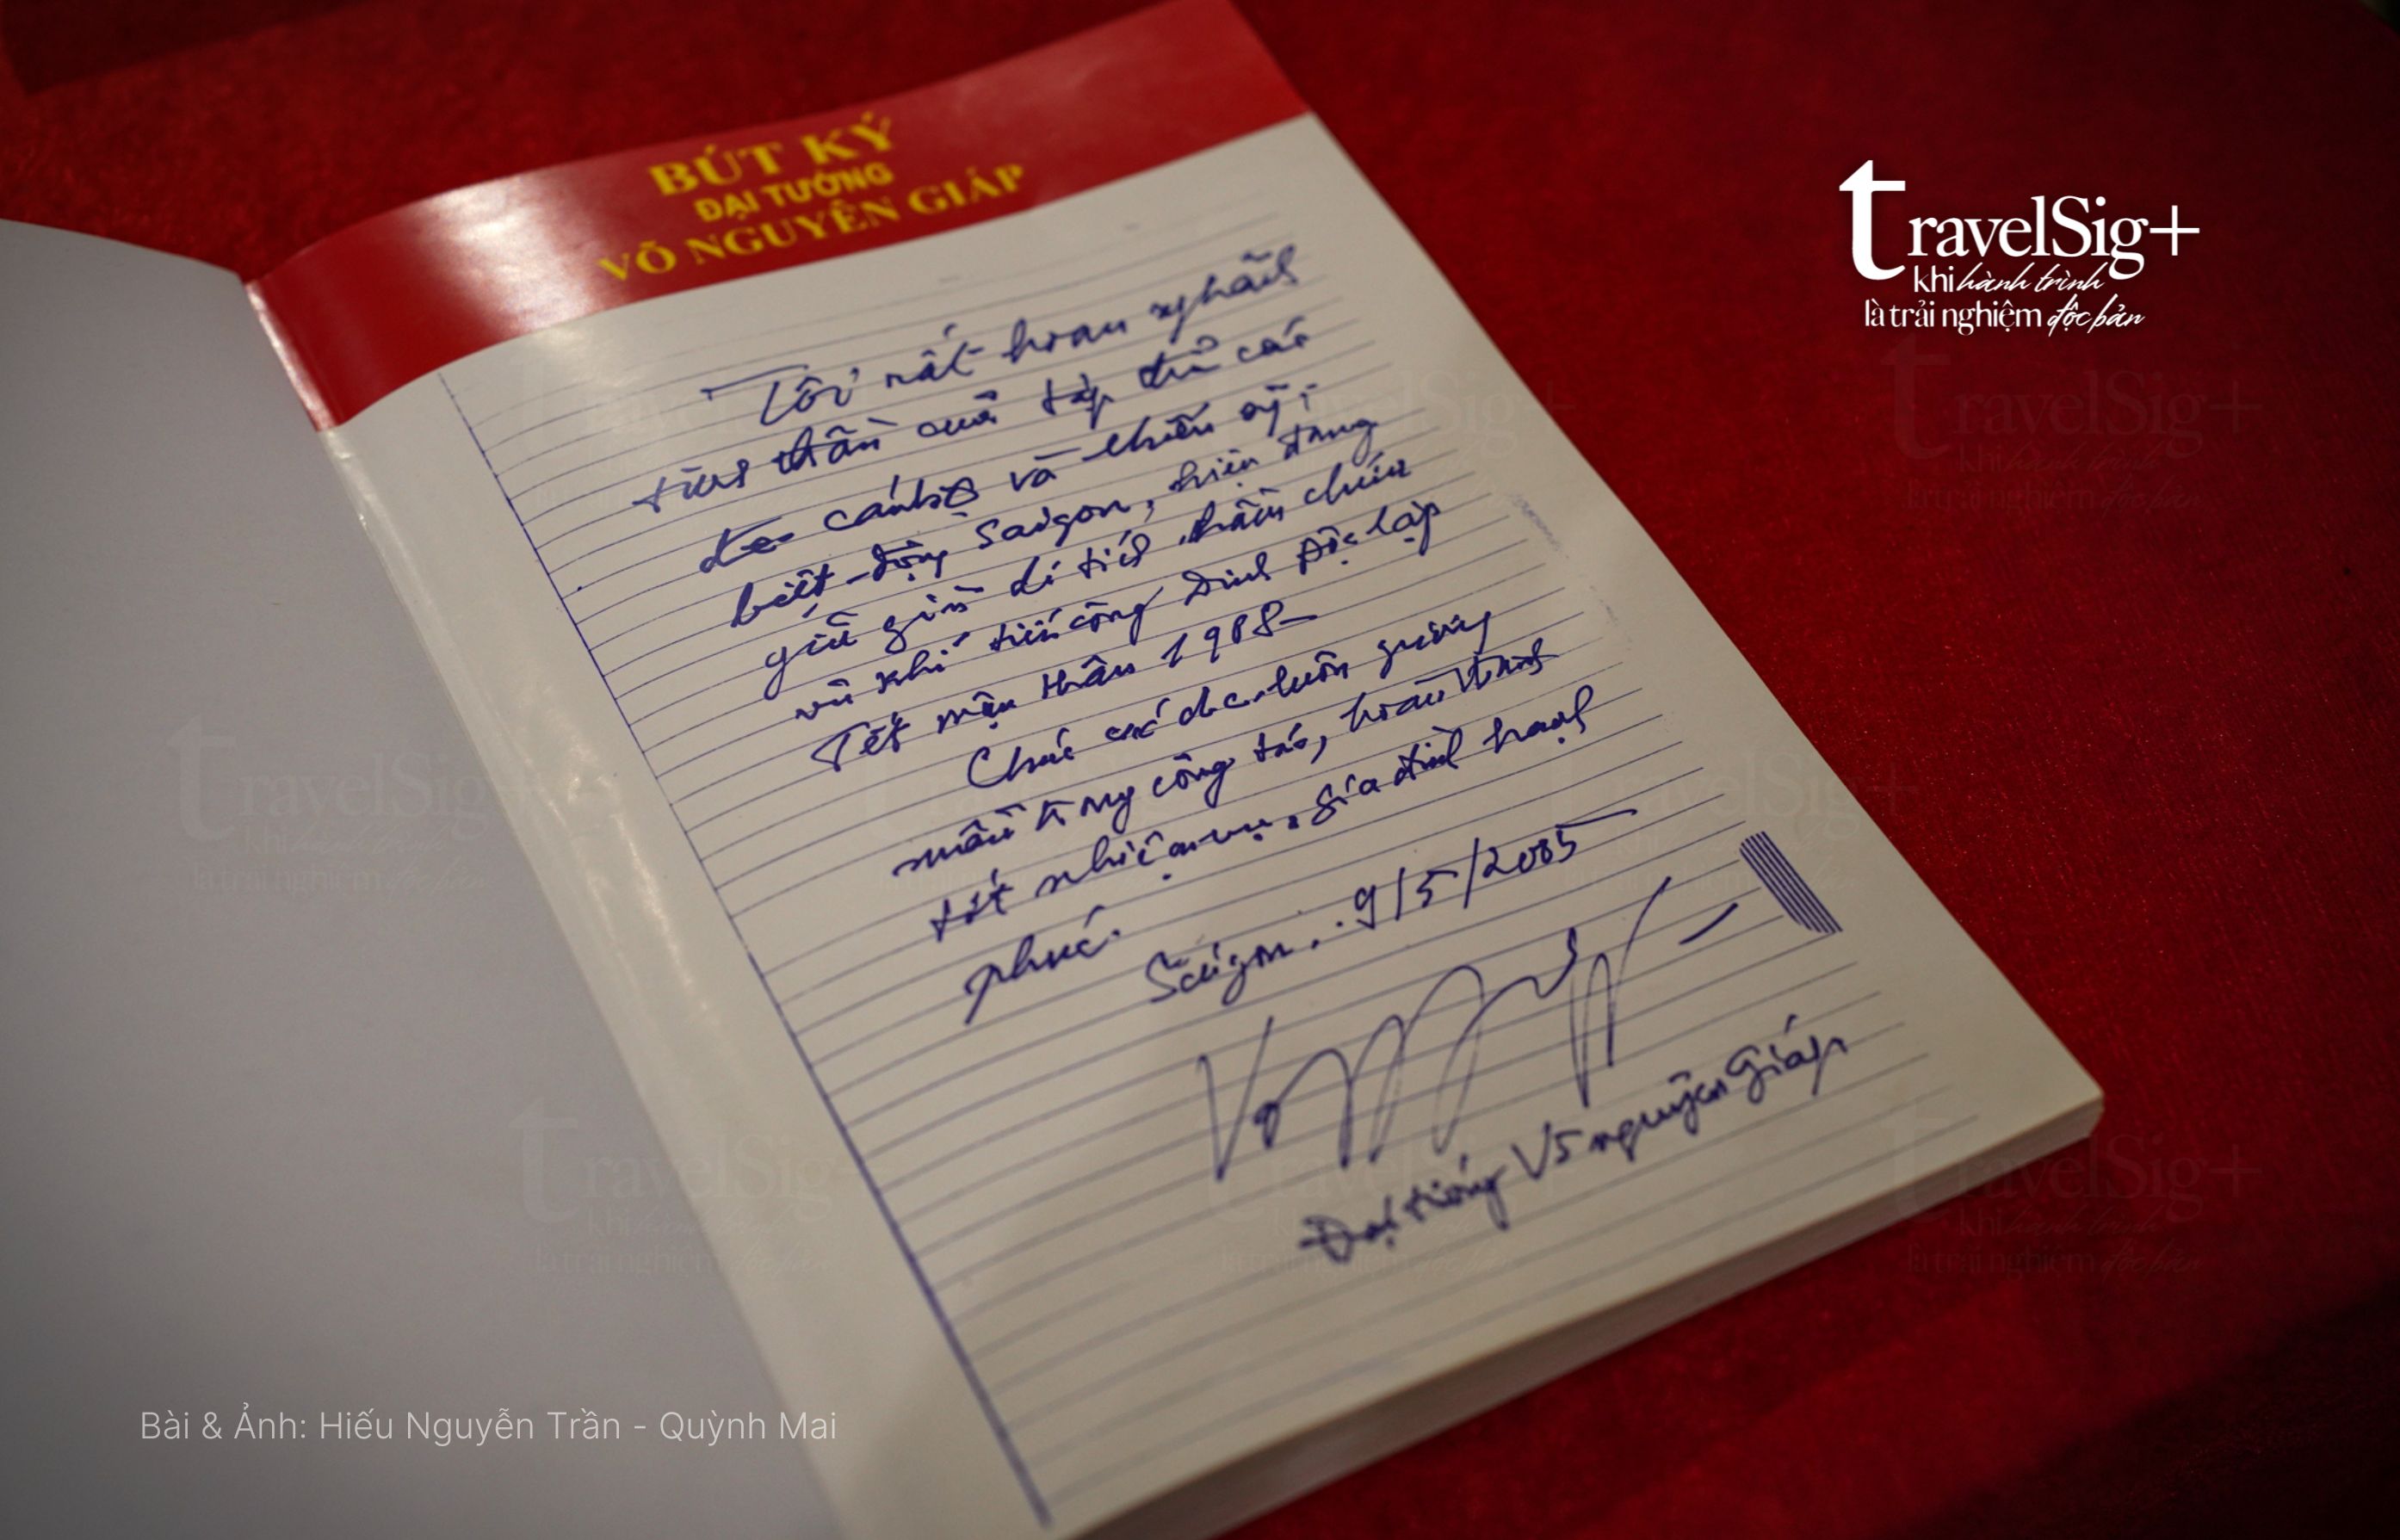 BÚT KÝ
ĐẠI TƯỚNG
VÕ NGUYÊN GIÁP
Tôi rất hoan nghênh
tinh thần của tập thể các
cán bộ và chiến sỹ
biệt-động Saigon, hiện đang
giữ gìn di tích hầm chứa
vũ khí tiến công Dinh Độc lập
Tết mậu thân 1968-
Chúc các đ/c luôn gương
mẫu trong công tác, hoàn thành
tốt nhiệm vụ, gia đình hạnh
phúc.
Saigon, 9/5/2005
Đại tướng Võ nguyên Giáp
travelSig+
khi hành trình
là trải nghiệm độc bản
Bài & Ảnh: Hiếu Nguyễn Trần - Quỳnh Mai